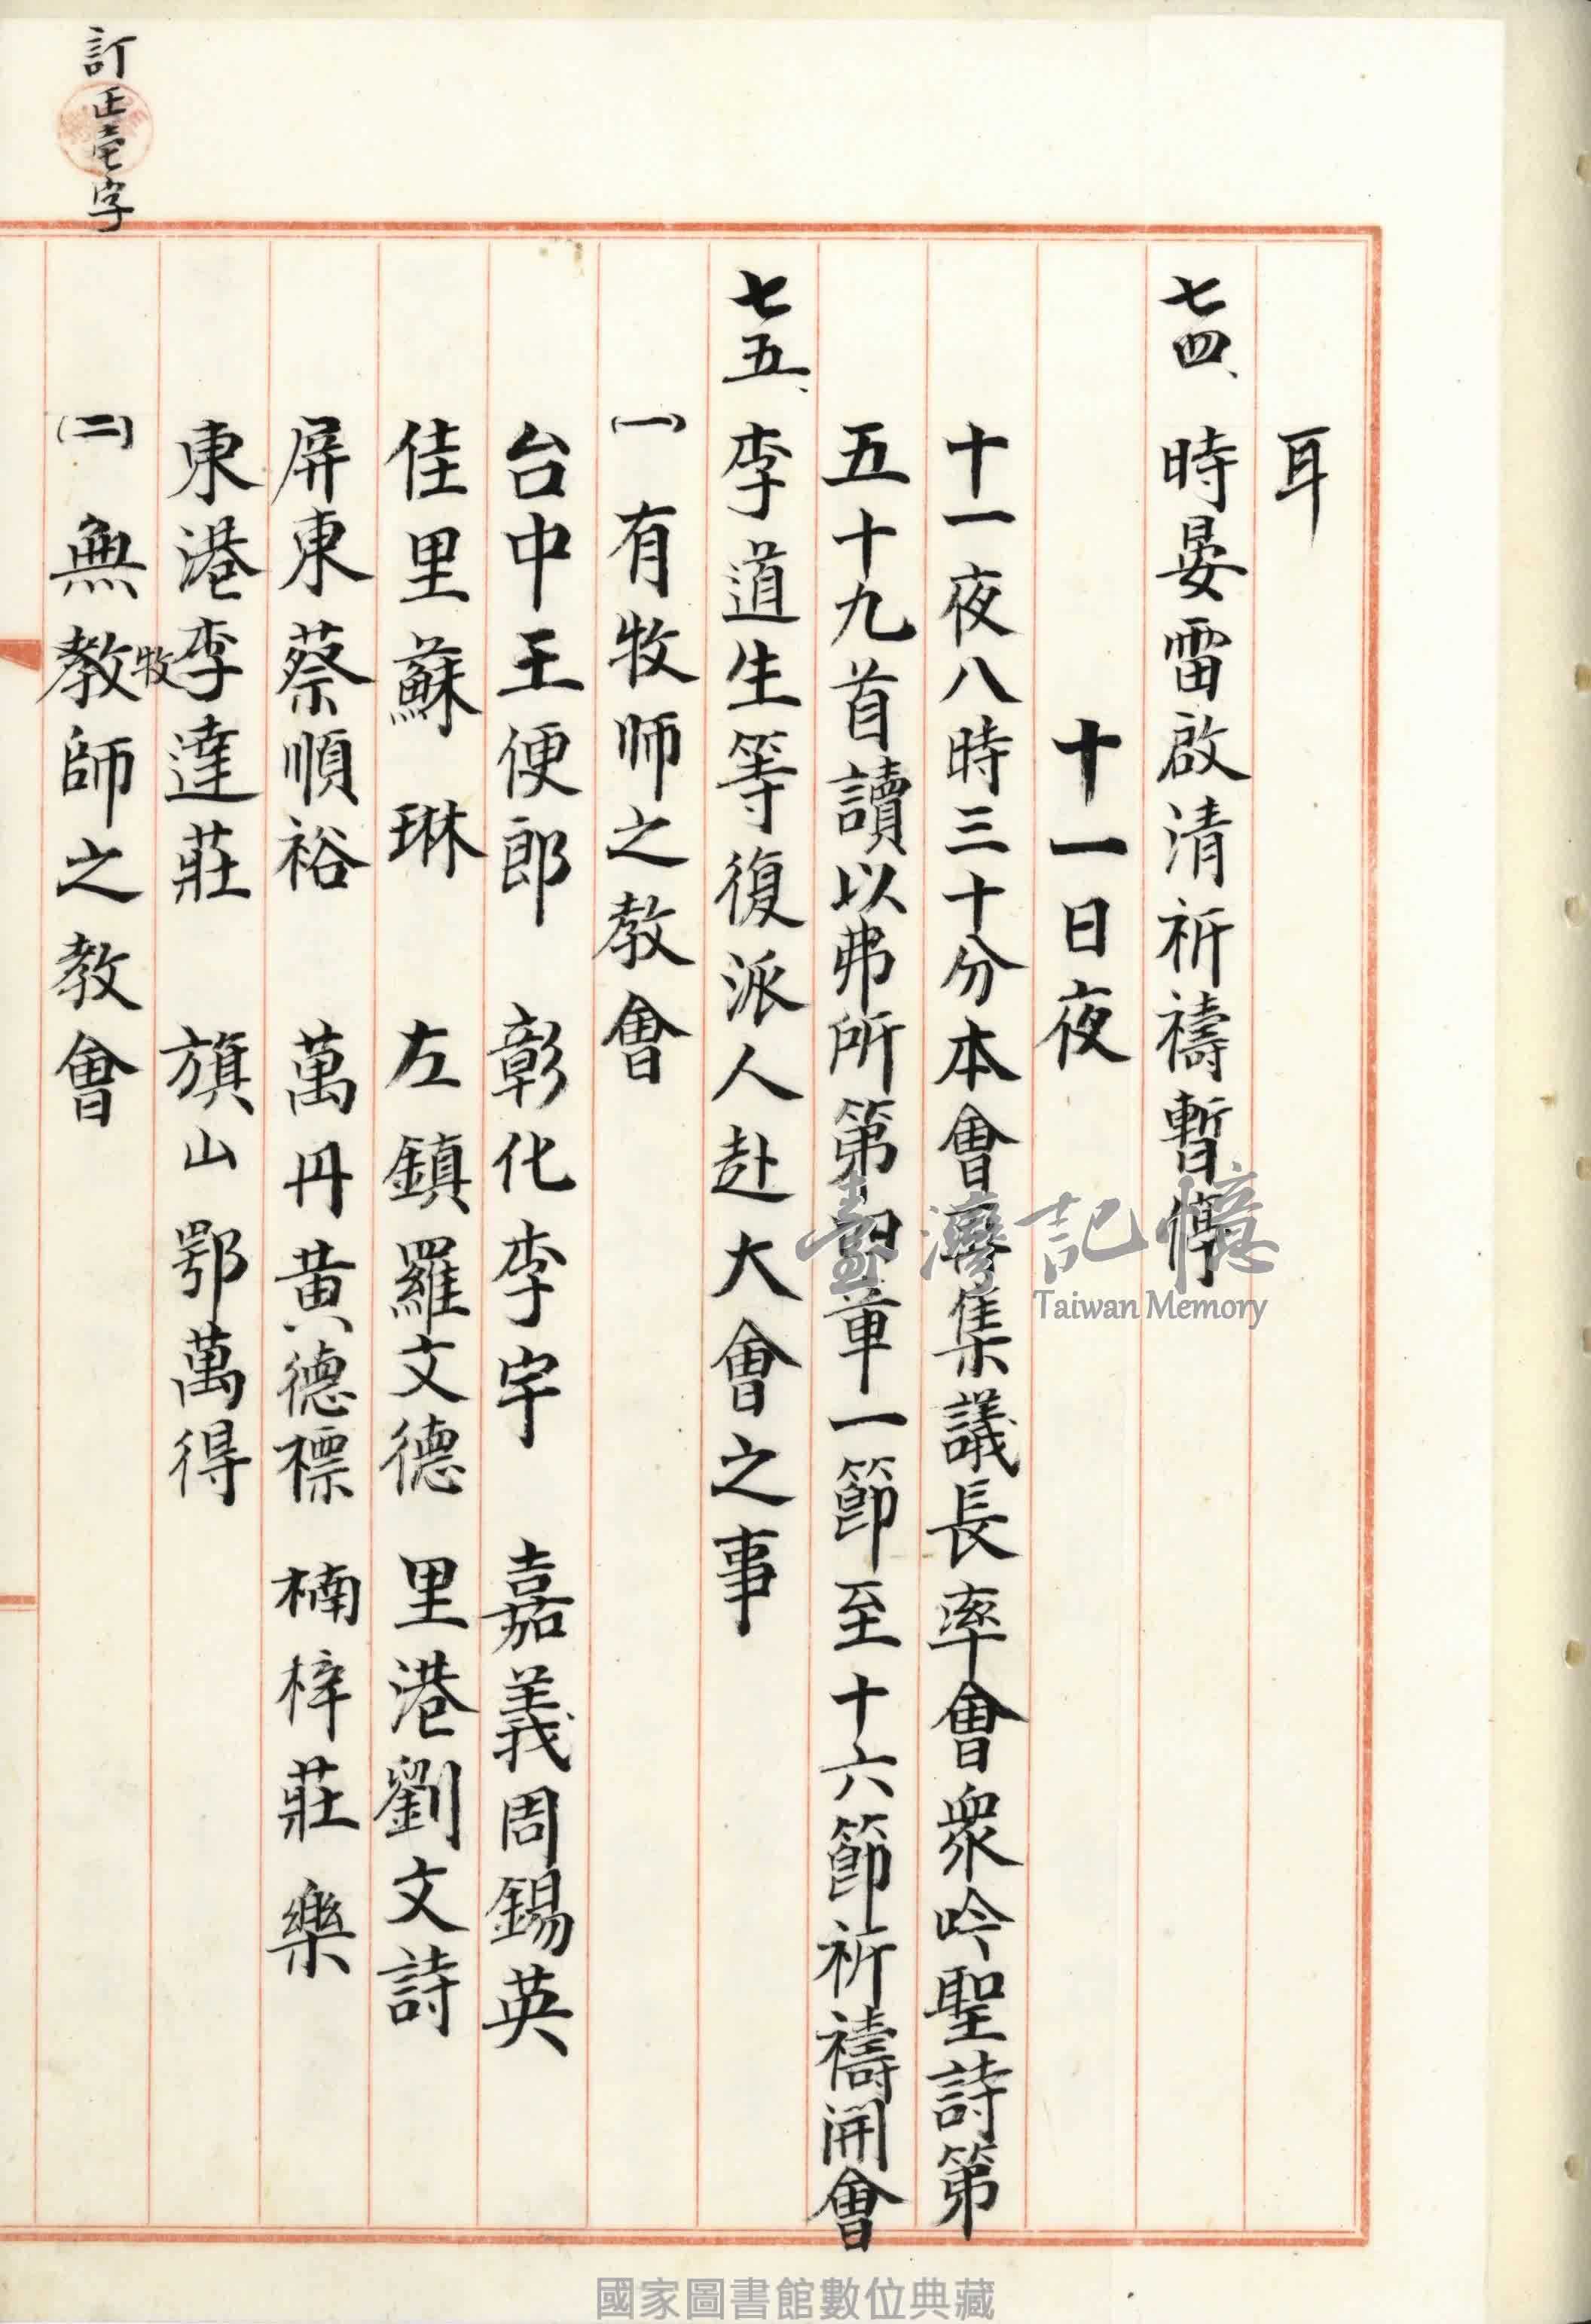 耳
七四、時晏雷啟清祈禱暫停
十一日夜
十一夜八時三十分本會齊集議長率會衆吟聖詩第
五十九首讀以弗所第四章一節至十六節祈禱開會
七五、李道生等復派人赴大會之事
(一)有牧师之教會
台中王便郎 彰化李宇 嘉義周錫英
佳里蘇琳 左鎮羅文德 里港劉文詩
屏東蔡順裕 萬丹黄德標 楠梓莊樂
東港李達莊 旗山鄂萬得
牧
(二)無教師之教會
訂正壱字
臺灣記憶
Taiwan Memory
國家圖書館數位典藏